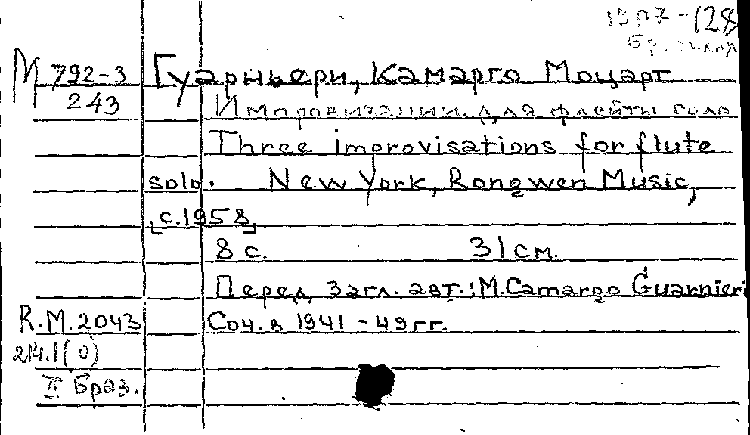 М 792-3
243
Гуарньери, Камарго Моцарт
Импровизации для флейты соло
Three improvisations for flute
solo. New York, Rongwen Music,
[c.1958]
8 с. 31 см.
Перед загл. авт.: M. Camargo Guarnieri
R.M.2043
Соч. в 1941-49 гг.
214.1(0)
II Браз.